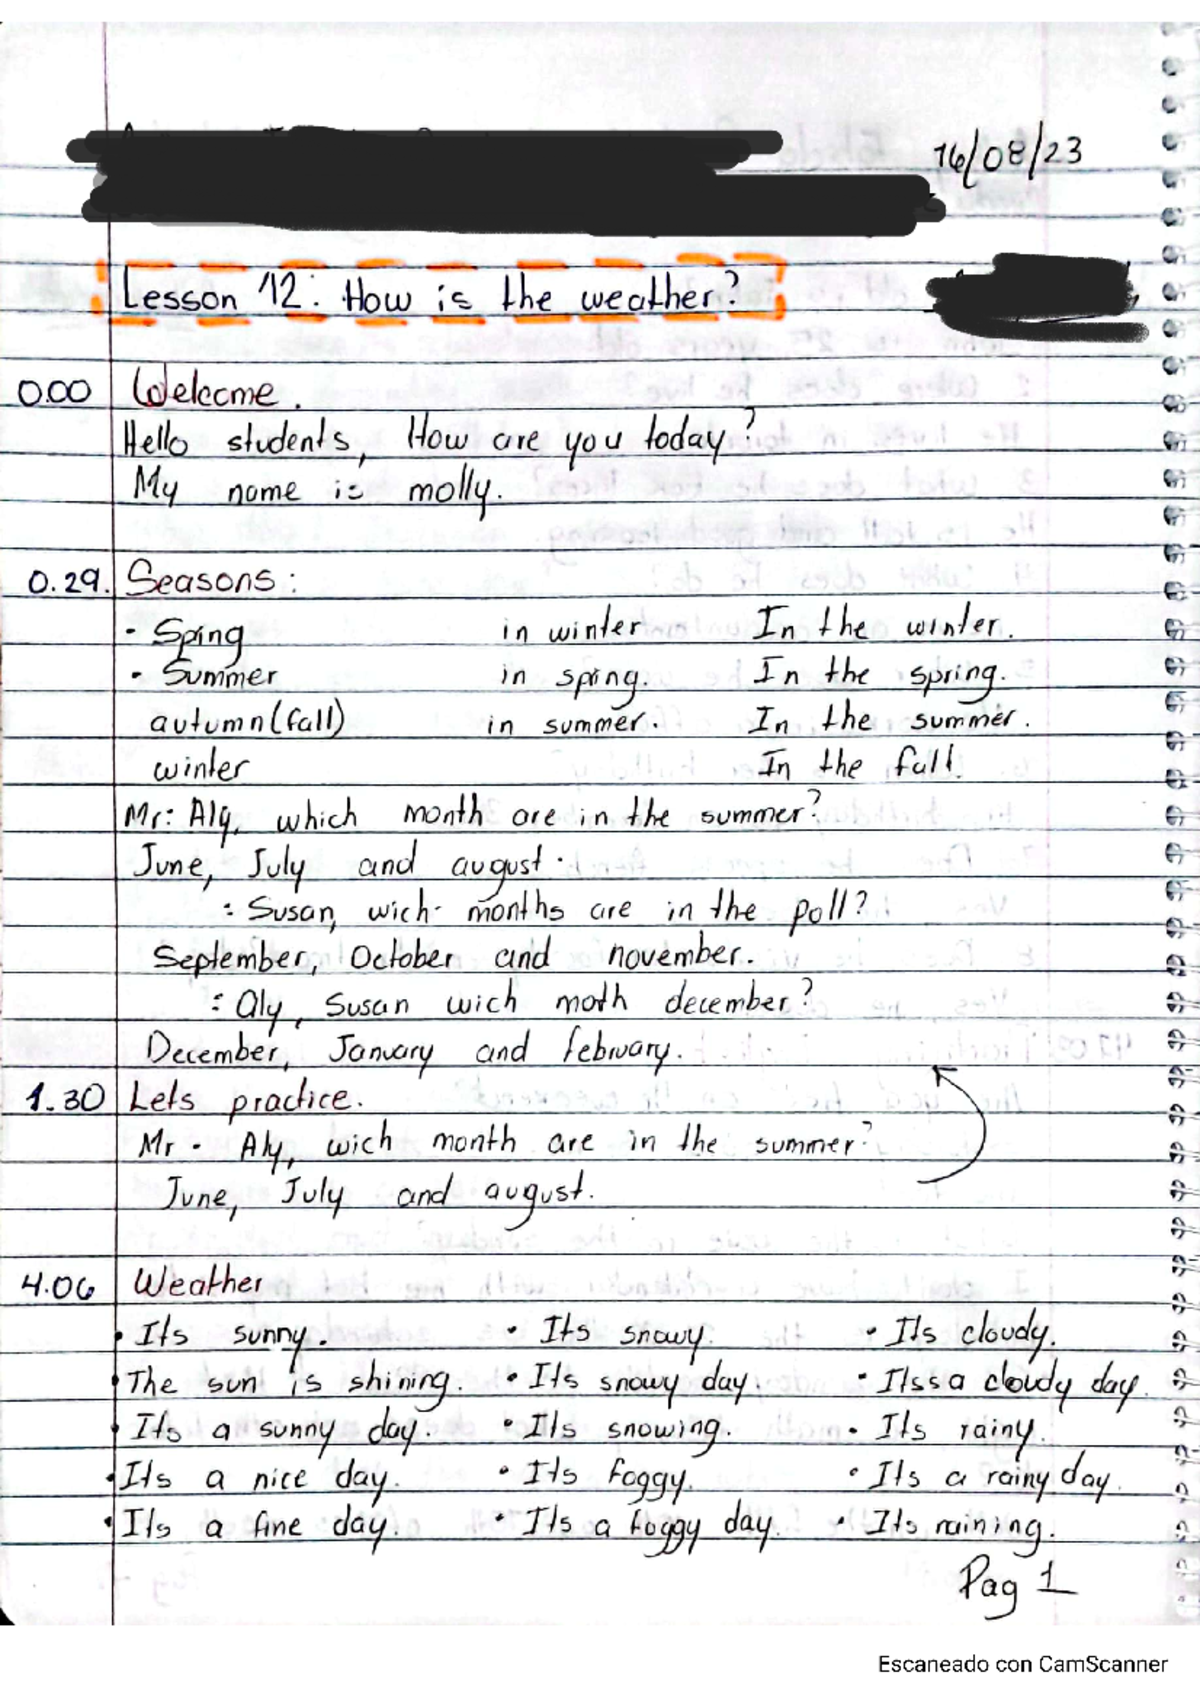 16/08/23
Lesson 12: How is the weather?
0.00 Welcome.
Hello students, How are you today?
My name is molly.
0.29. Seasons:
- Sping in winter In the winter.
- Summer in spring. In the spring.
autumn(fall) in summer. In the summer.
winter In the fall.
Mr: Aly, which month are in the summer?
June, July and august.
: Susan, wich- months are in the poll?
September, October and november.
: aly, Susan wich moth december?
December, January and february.
1.30 Lets practice.
Mr - Aly, wich month are in the summer?
June, July and august.
4.06 Weather
• Its sunny. • Its snowy. • Its cloudy.
• The sun is shining. • Its snowy day • Itssa cloudy day.
• Its a sunny day. • Its snowing. • Its rainy.
• Its a nice day. • Its foggy. • Its a rainy day.
• Its a fine day. • Its a foggy day. • Its raining.
Pag 1
Escaneado con CamScanner